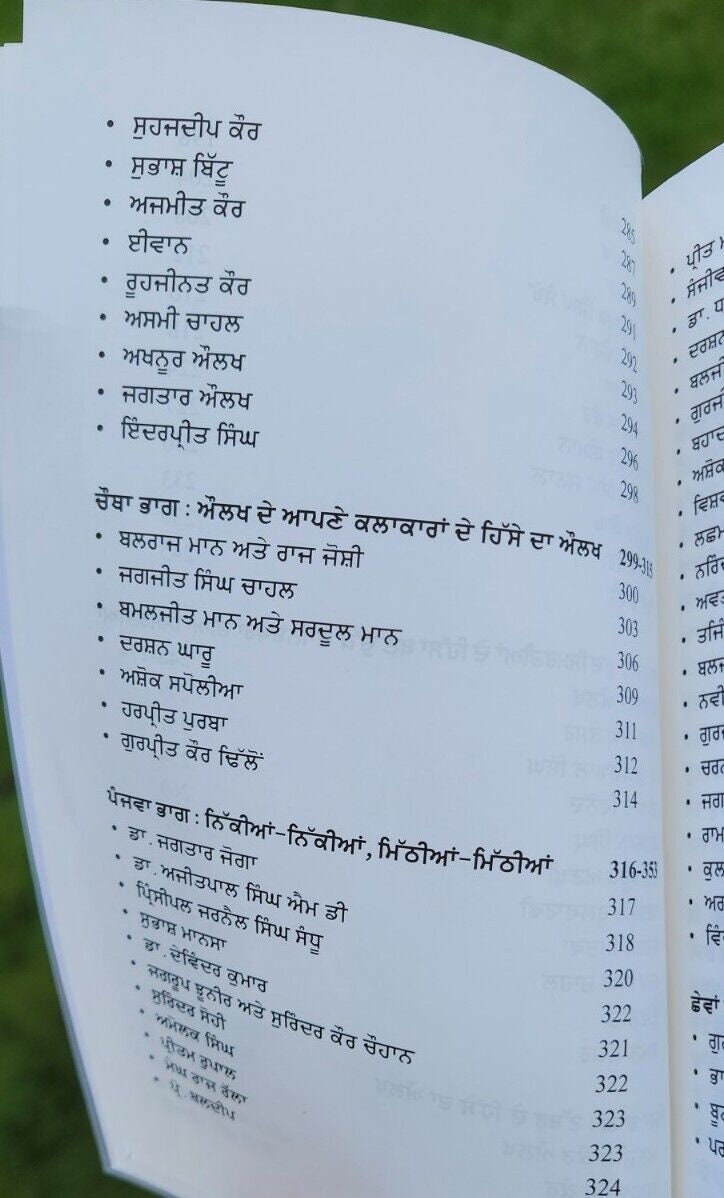 • ਸੁਹਜਦੀਪ ਕੌਰ 285
• ਸੁਭਾਸ਼ ਬਿੱਟੂ 287
• ਅਜਮੀਤ ਕੌਰ 289
• ਈਵਾਨ 291
• ਰੂਹਜੀਨਤ ਕੌਰ 292
• ਅਸਮੀ ਚਾਹਲ 293
• ਅਖਨੂਰ ਔਲਖ 294
• ਜਗਤਾਰ ਔਲਖ 296
• ਇੰਦਰਪ੍ਰੀਤ ਸਿੰਘ 298
ਚੌਥਾ ਭਾਗ : ਔਲਖ ਦੇ ਆਪਣੇ ਕਲਾਕਾਰਾਂ ਦੇ ਹਿੱਸੇ ਦਾ ਔਲਖ 299-315
• ਬਲਰਾਜ ਮਾਨ ਅਤੇ ਰਾਜ ਜੋਸ਼ੀ 300
• ਜਗਜੀਤ ਸਿੰਘ ਚਾਹਲ 303
• ਬਮਲਜੀਤ ਮਾਨ ਅਤੇ ਸਰਦੂਲ ਮਾਨ 306
• ਦਰਸ਼ਨ ਘਾਰੂ 309
• ਅਸ਼ੋਕ ਸਪੋਲੀਆ 311
• ਹਰਪ੍ਰੀਤ ਪੁਰਬਾ 312
• ਗੁਰਪ੍ਰੀਤ ਕੌਰ ਢਿੱਲੋਂ 314
ਪੰਜਵਾ ਭਾਗ : ਨਿੱਕੀਆਂ-ਨਿੱਕੀਆਂ, ਮਿੱਠੀਆਂ-ਮਿੱਠੀਆਂ 316-353
• ਡਾ. ਜਗਤਾਰ ਜੋਗਾ 317
• ਡਾ. ਅਜੀਤਪਾਲ ਸਿੰਘ ਐਮ ਡੀ 318
• ਪ੍ਰਿੰਸੀਪਲ ਜਰਨੈਲ ਸਿੰਘ ਸੰਧੂ 320
• ਸੁਭਾਸ਼ ਮਾਨਸਾ 322
• ਡਾ. ਦੇਵਿੰਦਰ ਕੁਮਾਰ 321
• ਜਗਰੂਪ ਝੂਨੀਰ ਅਤੇ ਸੁਰਿੰਦਰ ਕੌਰ ਚੌਹਾਨ 322
• ਸੁਰਿੰਦਰ ਸੋਹੀ 323
• ਅਮੋਲਕ ਸਿੰਘ 323
• ਪ੍ਰੀਤਮ ਰੁਪਾਲ 324
• ਮੇਘ ਰਾਜ ਰੱਲਾ
• ਪ੍ਰੋ. ਬਲਦੀਪ
• ਪ੍ਰੀਤ
• ਸੰਜੀਵ
• ਡਾ. ਧ
• ਦਰਸ਼ਨ
• ਬਲਜੀ
• ਗੁਰਜੀ
• ਬਹਾਦ
• ਅਸ਼ੋਕ
• ਵਿਸ਼ਵ
• ਲਛਮ
• ਨਰਿੰਦ
• ਅਵਤ
• ਤਜਿੰ
• ਬਲਜ
• ਨਵੀ
• ਗੁਰਦ
• ਚਰਨ
• ਜਗ
• ਰਾਮ
• ਕੁਲ
• ਅਰ
• ਵਿੰ
ਛੇਵਾਂ
• ਗੁ
• ਭਾ
• ਬੂ
• ਪਰ